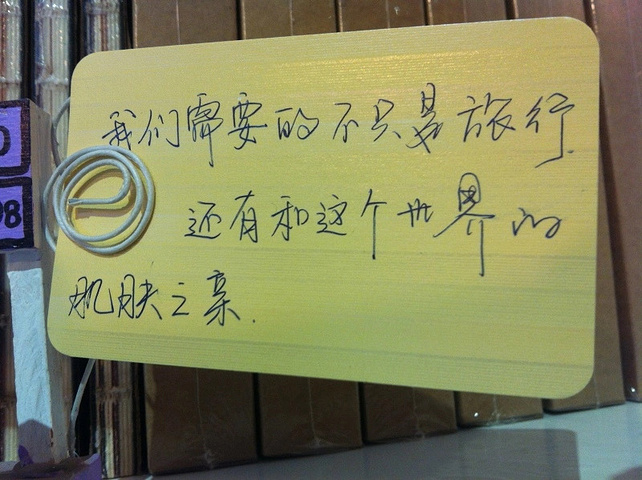 我们需要的不只是旅行.
还有和这个世界的
肌肤之亲.
0
98